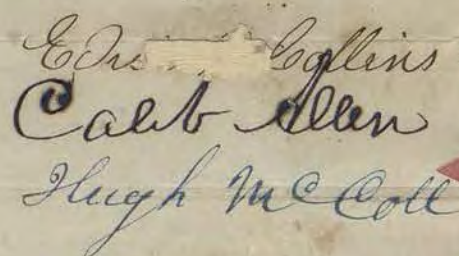 Collins
Caleb Allen
Hugh McColl